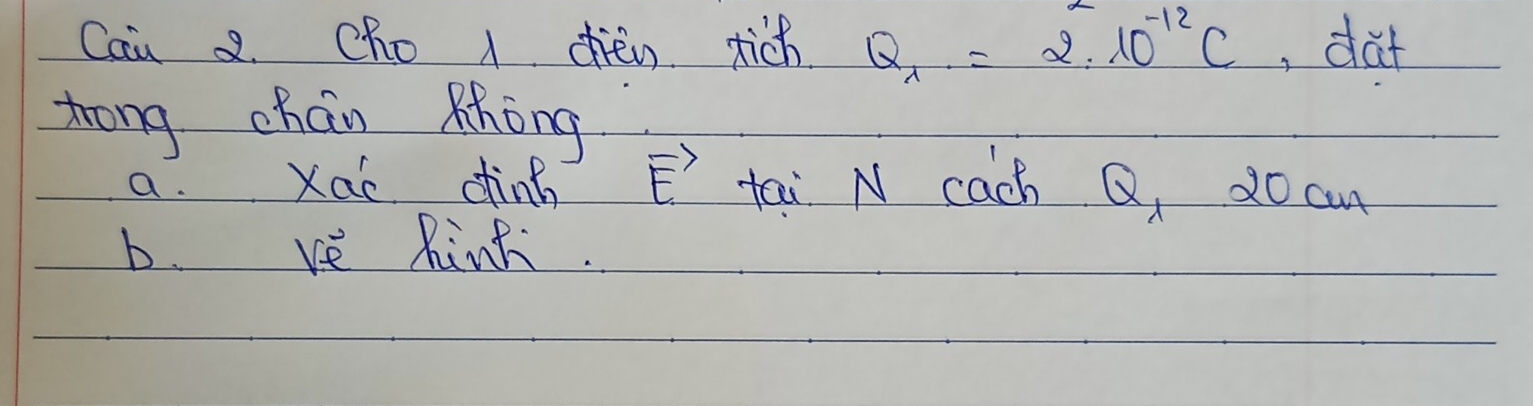 Câu 2. Cho 1 điện tích Q₁ = 2.10⁻¹² C, đặt
trong chân không.
a. Xác định E⃗ tại N cách Q₁ 20 cm
b. Vẽ hình.